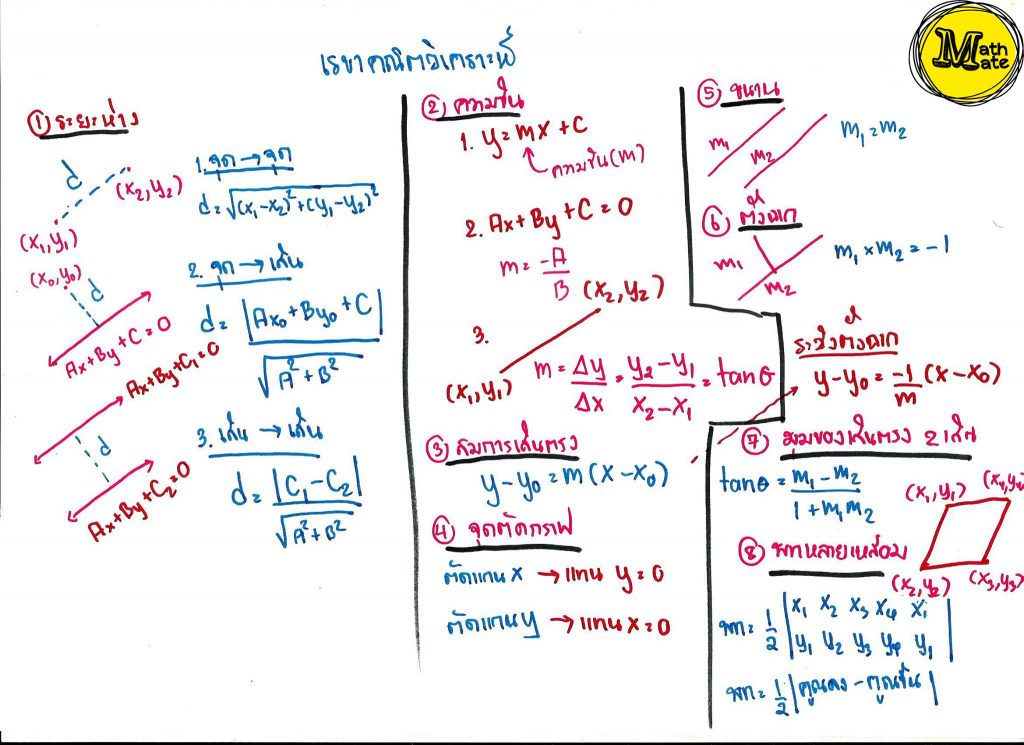 Math Mate
เรขาคณิตวิเคราะห์
① ระยะห่าง
d
(x₂,y₂)
(x₁,y₁)
1. จุด → จุด
d = √((x₁-x₂)²+(y₁-y₂)²)
(x₀,y₀)
d
Ax+By+C=0
2. จุด → เส้น
d = |Ax₀+By₀+C| / √(A²+B²)
Ax+By+C₁=0
d
Ax+By+C₂=0
3. เส้น → เส้น
d = |C₁-C₂| / √(A²+B²)
② ความชัน
1. y=mx+C
ความชัน(m)
2. Ax+By+C=0
m = -A/B
3.
(x₂,y₂)
(x₁,y₁)
m = Δy/Δx = (y₂-y₁)/(x₂-x₁) = tanθ
③ สมการเส้นตรง
y-y₀=m(x-x₀)
④ จุดตัดกราฟ
ตัดแกน x → แทน y=0
ตัดแกน y → แทน x=0
⑤ ขนาน
m₁
m₂
m₁=m₂
⑥ ตั้งฉาก
m₁
m₂
m₁×m₂=-1
ระวังตั้งฉาก
y-y₀=-1/m(x-x₀)
⑦ มุมของเส้นตรง 2 เส้น
tanθ = (m₁-m₂)/(1+m₁m₂)
⑧ พทหลายเหลี่ยม
(x₁,y₁)
(x₄,y₄)
(x₂,y₂)
(x₃,y₃)
พท = 1/2 |x₁ x₂ x₃ x₄ x₁
y₁ y₂ y₃ y₄ y₁|
พท = 1/2 |คูณลง-คูณขึ้น|